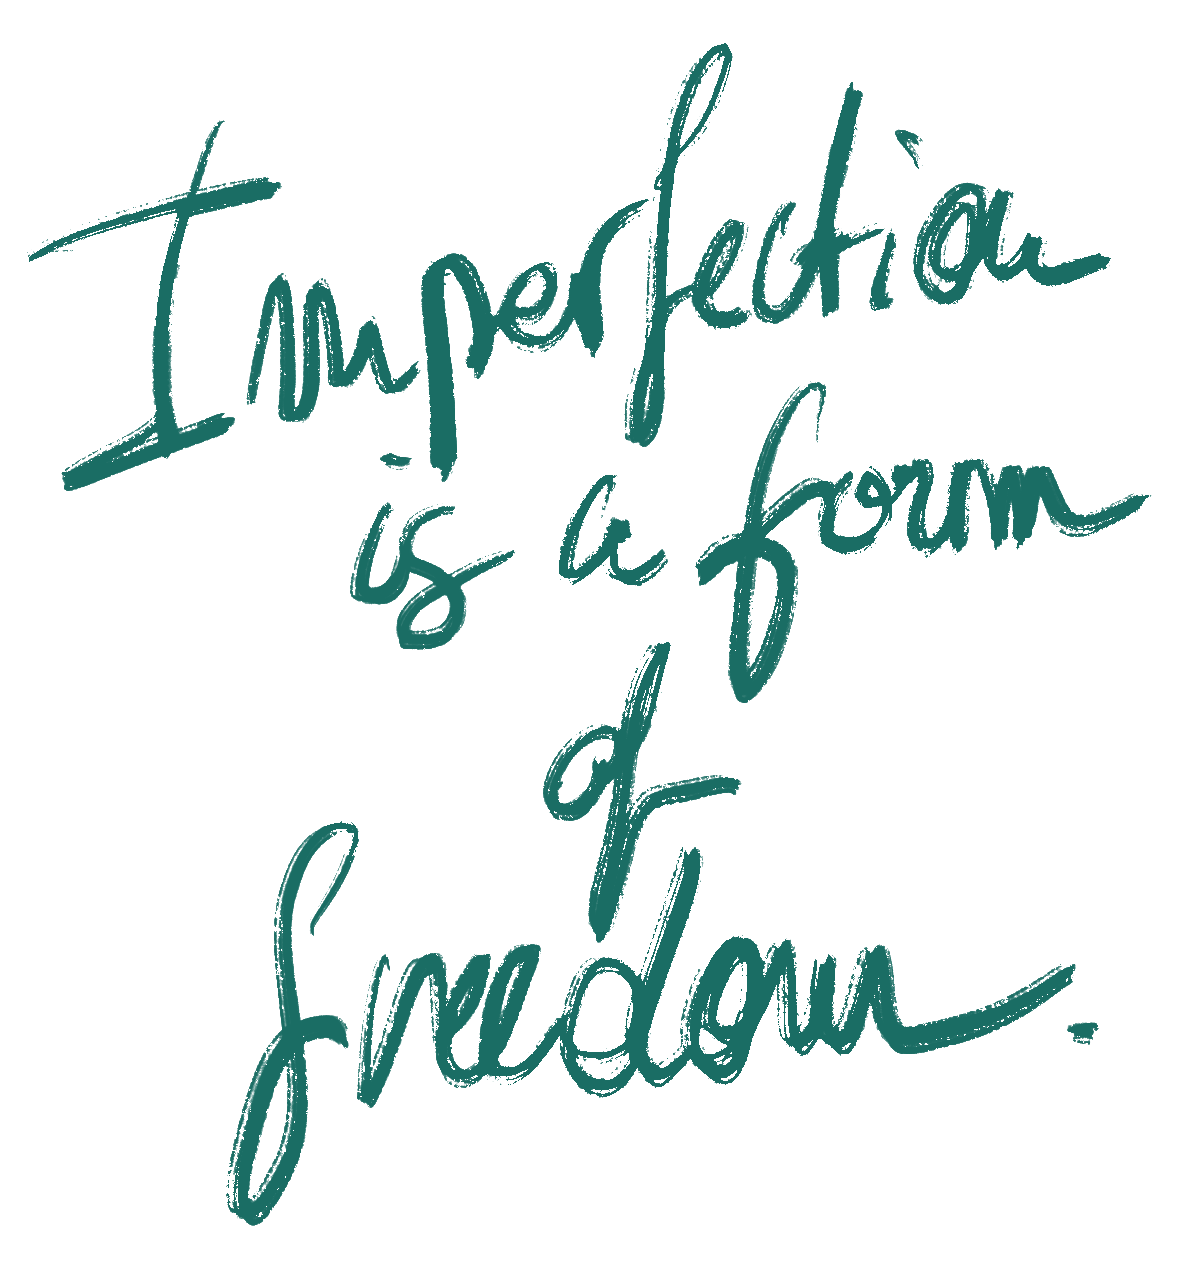 Imperfection
is a form
of
freedom.